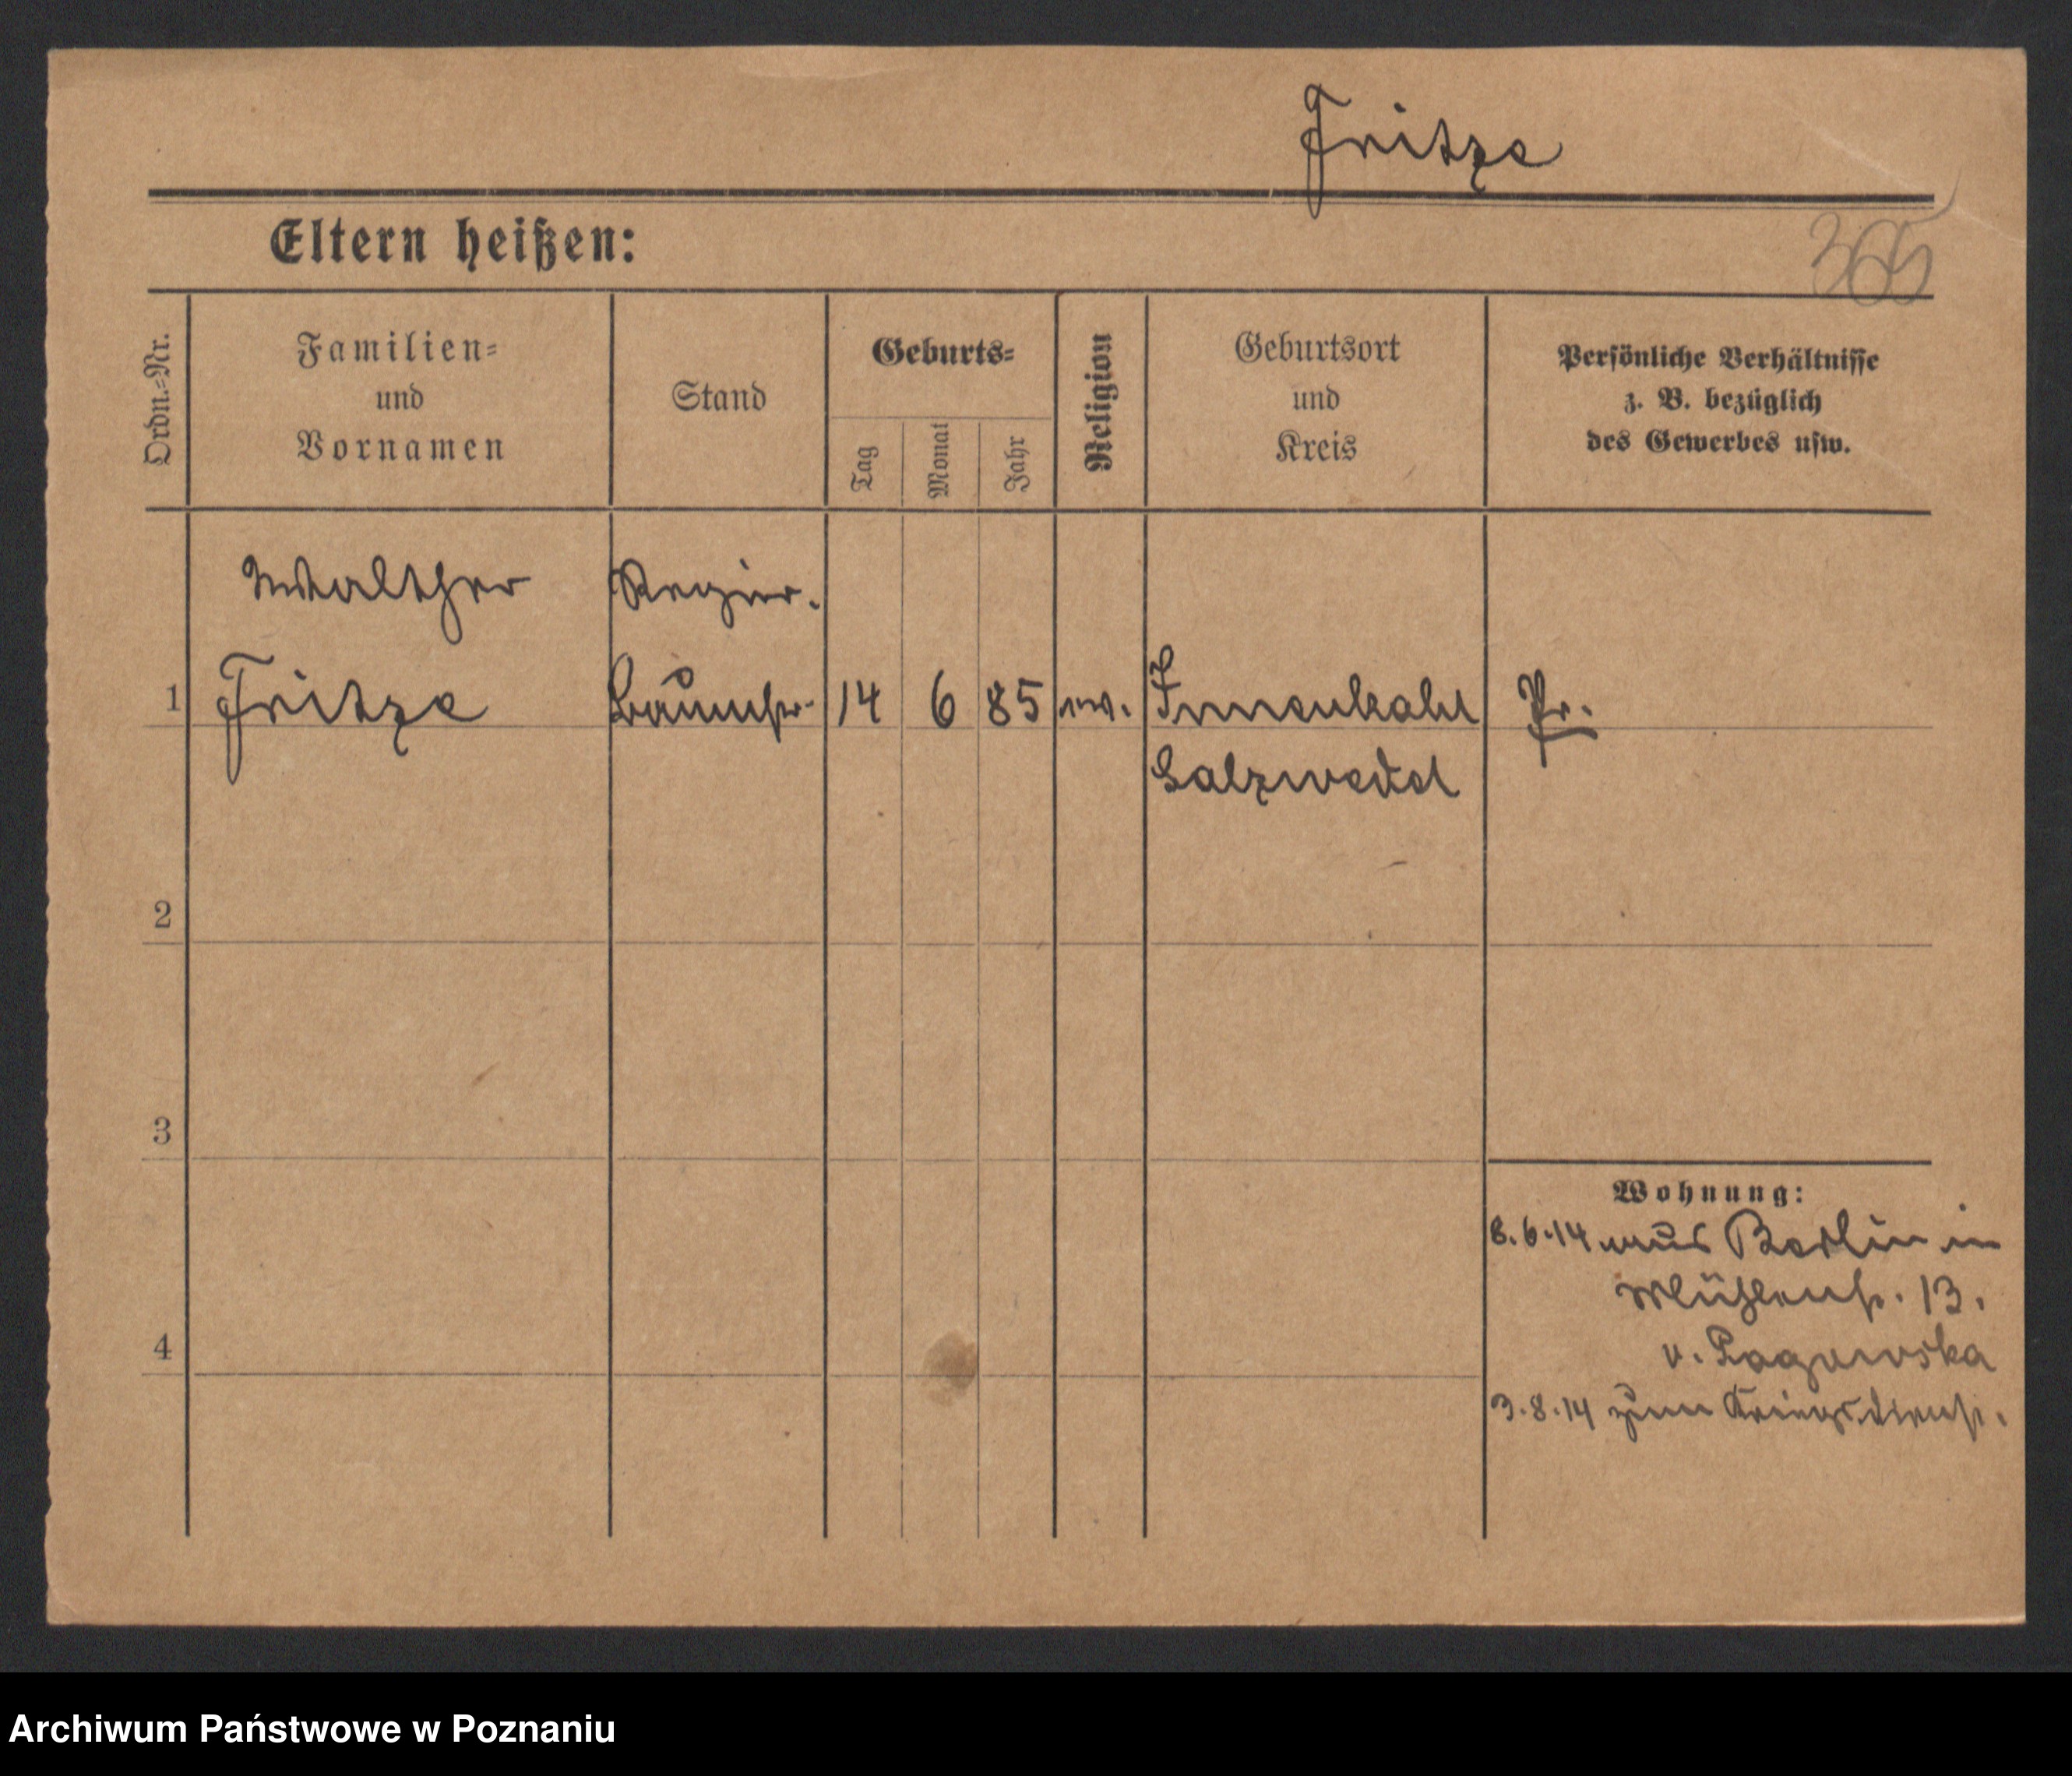 Fritze
Eltern heißen:
365
Ordn.=Nr.
Familien=
und
Vornamen
Stand
Geburts=
Tag
Monat
Jahr
Religion
Geburtsort
und
Kreis
Persönliche Verhältnisse
z. B. bezüglich
des Gewerbes usw.
Walther
Regier.
1 Fritze Baumstr. 14 6 85 ev. Pr.
Salzwedel
2
3
4
Wohnung:
8.6.14 aus Berlin in
Mühlenstr. 13.
v.
3.8.14 zum Kriegsdienst.
Archiwum Państwowe w Poznaniu